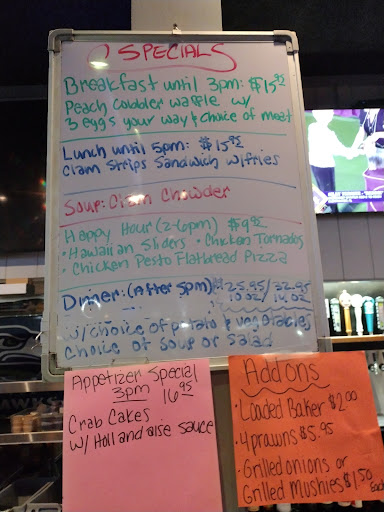 SPECIALS
Breakfast until 3pm: $15.95
Peach Cobbler waffle w/
3 eggs your way & choice of meat
Lunch until 5pm: $15.95
Clam Strips Sandwich w/fries
Soup: Clam Chowder
Happy Hour (2-6pm) $9.95
• Hawaiian Sliders • Chicken Tornados
• Chicken Pesto Flatbread Pizza
Dinner: (After 5pm) 25.95/ 32.95
10 oz/ 14 oz
w/choice of potato & vegetables
Choice of Soup or Salad
Appetizer Special
3pm 16.95
Crab Cakes
w/ Hollandaise sauce
Add ons
• Loaded Baker $2.00
• 4 prawns $5.95
• Grilled onions or
Grilled Mushies $1.50
Each